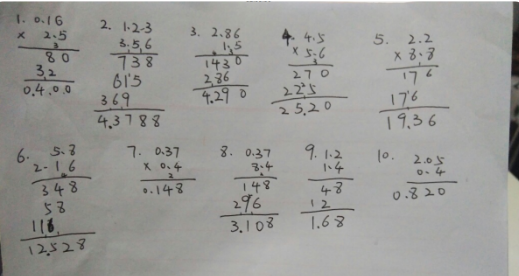 1. 0.16
× 2.5
80
32
0.4.0.0
2. 1.2.3
3.5.6
738
615
369
4.3788
3. 2.86
1.5
1430
286
4.290
4. 4.5
× 5.6
270
225
25.20
5. 2.2
× 8.8
176
176
19.36
6. 5.8
2.16
348
58
116
12.528
7. 0.37
× 0.4
0.148
8. 0.37
8.4
148
296
3.108
9. 1.2
1.4
48
12
1.68
10. 2.05
0.4
0.820